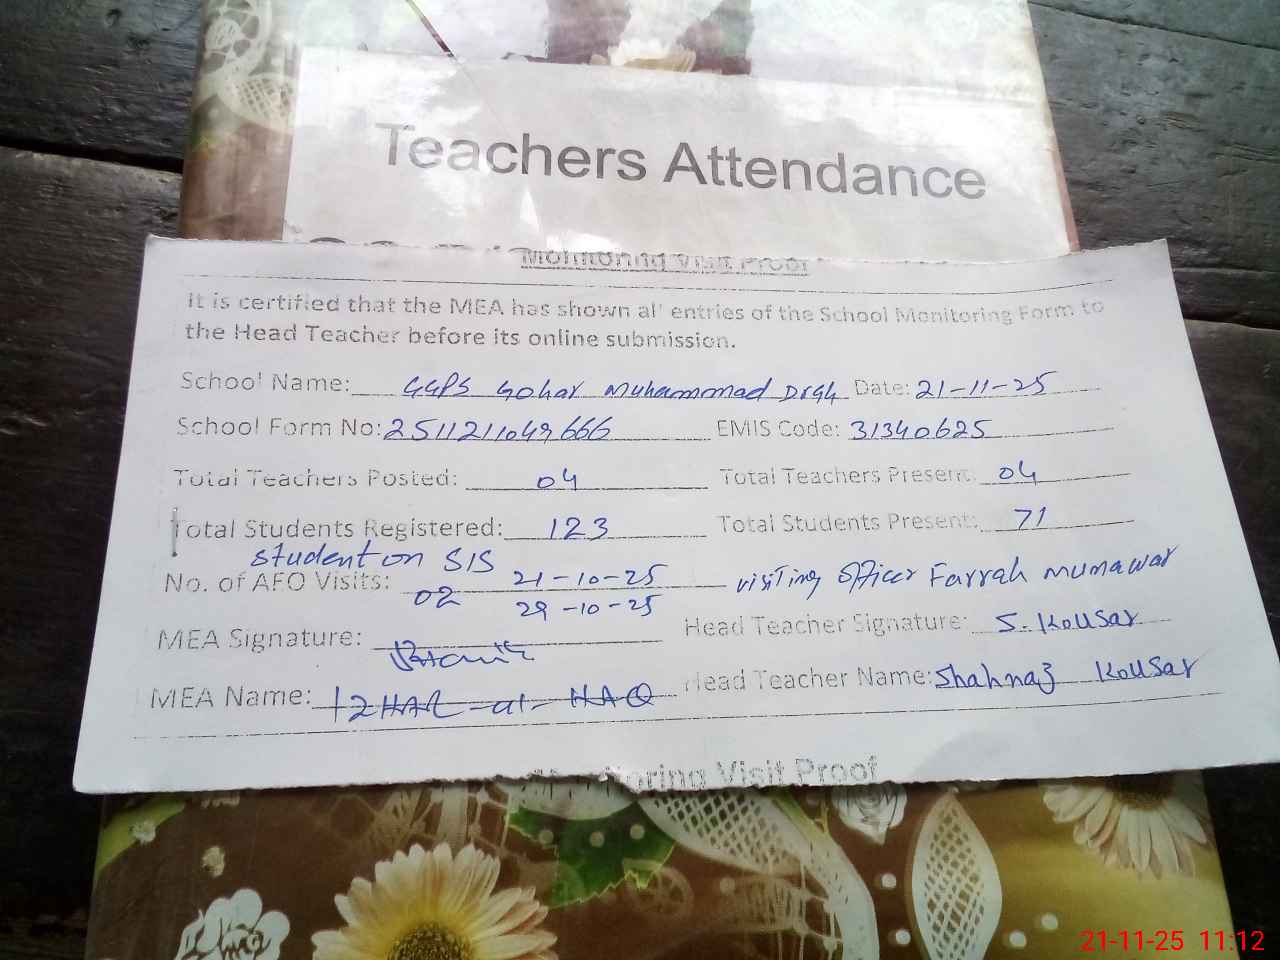 Teachers Attendance
Monitoring Visit Proof
It is certified that the MEA has shown all entries of the School Monitoring Form to
the Head Teacher before its online submission.
School Name: GGPS Gohar Muhammad Drgh Date: 21-11-25
School Form No: 2511211049666 EMIS Code: 31340625
Total Teachers Posted: 04 Total Teachers Present: 04
Total Students Registered: 123 Total Students Present: 71
student on SIS
No. of AEO Visits: 02 21-10-25 visiting Officer Farrah Munawar
29-10-25
MEA Signature: Head Teacher Signature: S. Kousar
MEA Name: IZHAR-ul-HAQ Head Teacher Name: Shahnaz Kousar
Monitoring Visit Proof
21-11-25 11:12